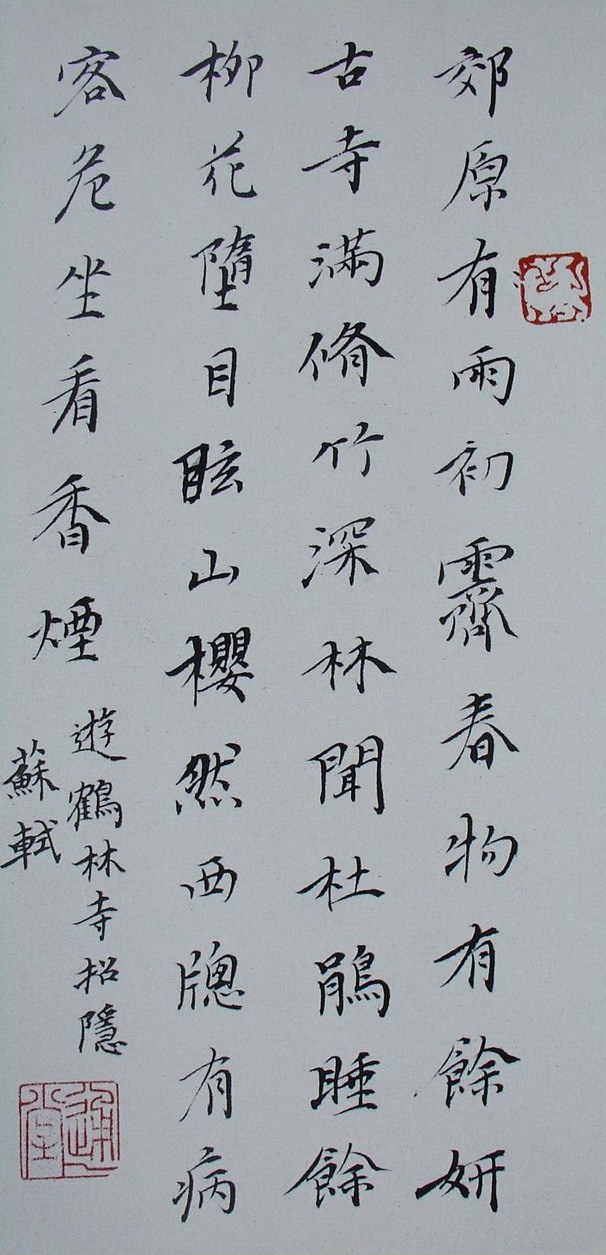 郊原有雨初霽春物有餘妍
古寺滿脩竹深林聞杜鵑睡餘
柳花墮目眩山櫻然西牕有病
客危坐看香煙
遊鶴林寺招隱
蘇軾